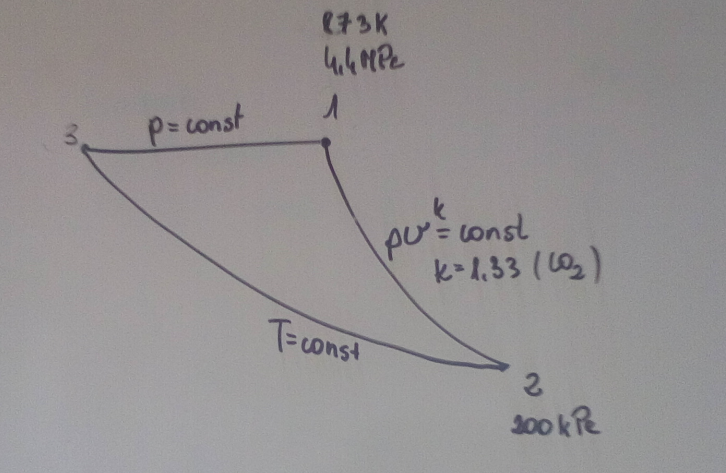 873K
4,4MPa
1
3
p=const
pv^k=const
k=1.33 (CO2)
T=const
2
200kPa